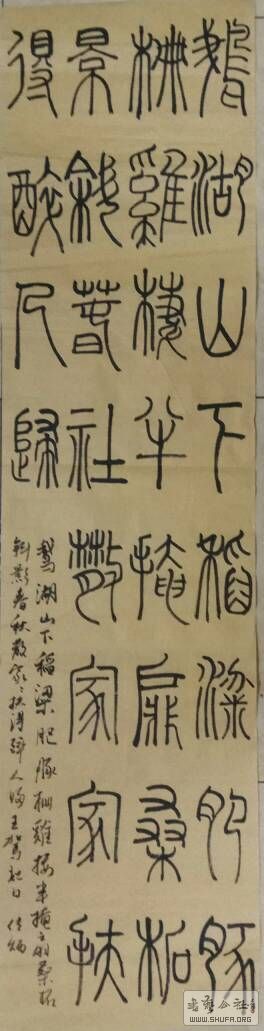 鵝湖山下稻粱肥豚
柵雞棲半掩扉桑柘
景斜春社散家家扶
得醉人歸
鵝湖山下稻粱肥豚柵雞棲半掩扉桑柘
斜影春秋散家々扶得醉人歸王駕社日
書法公社
WWW.SHUFA.ORG